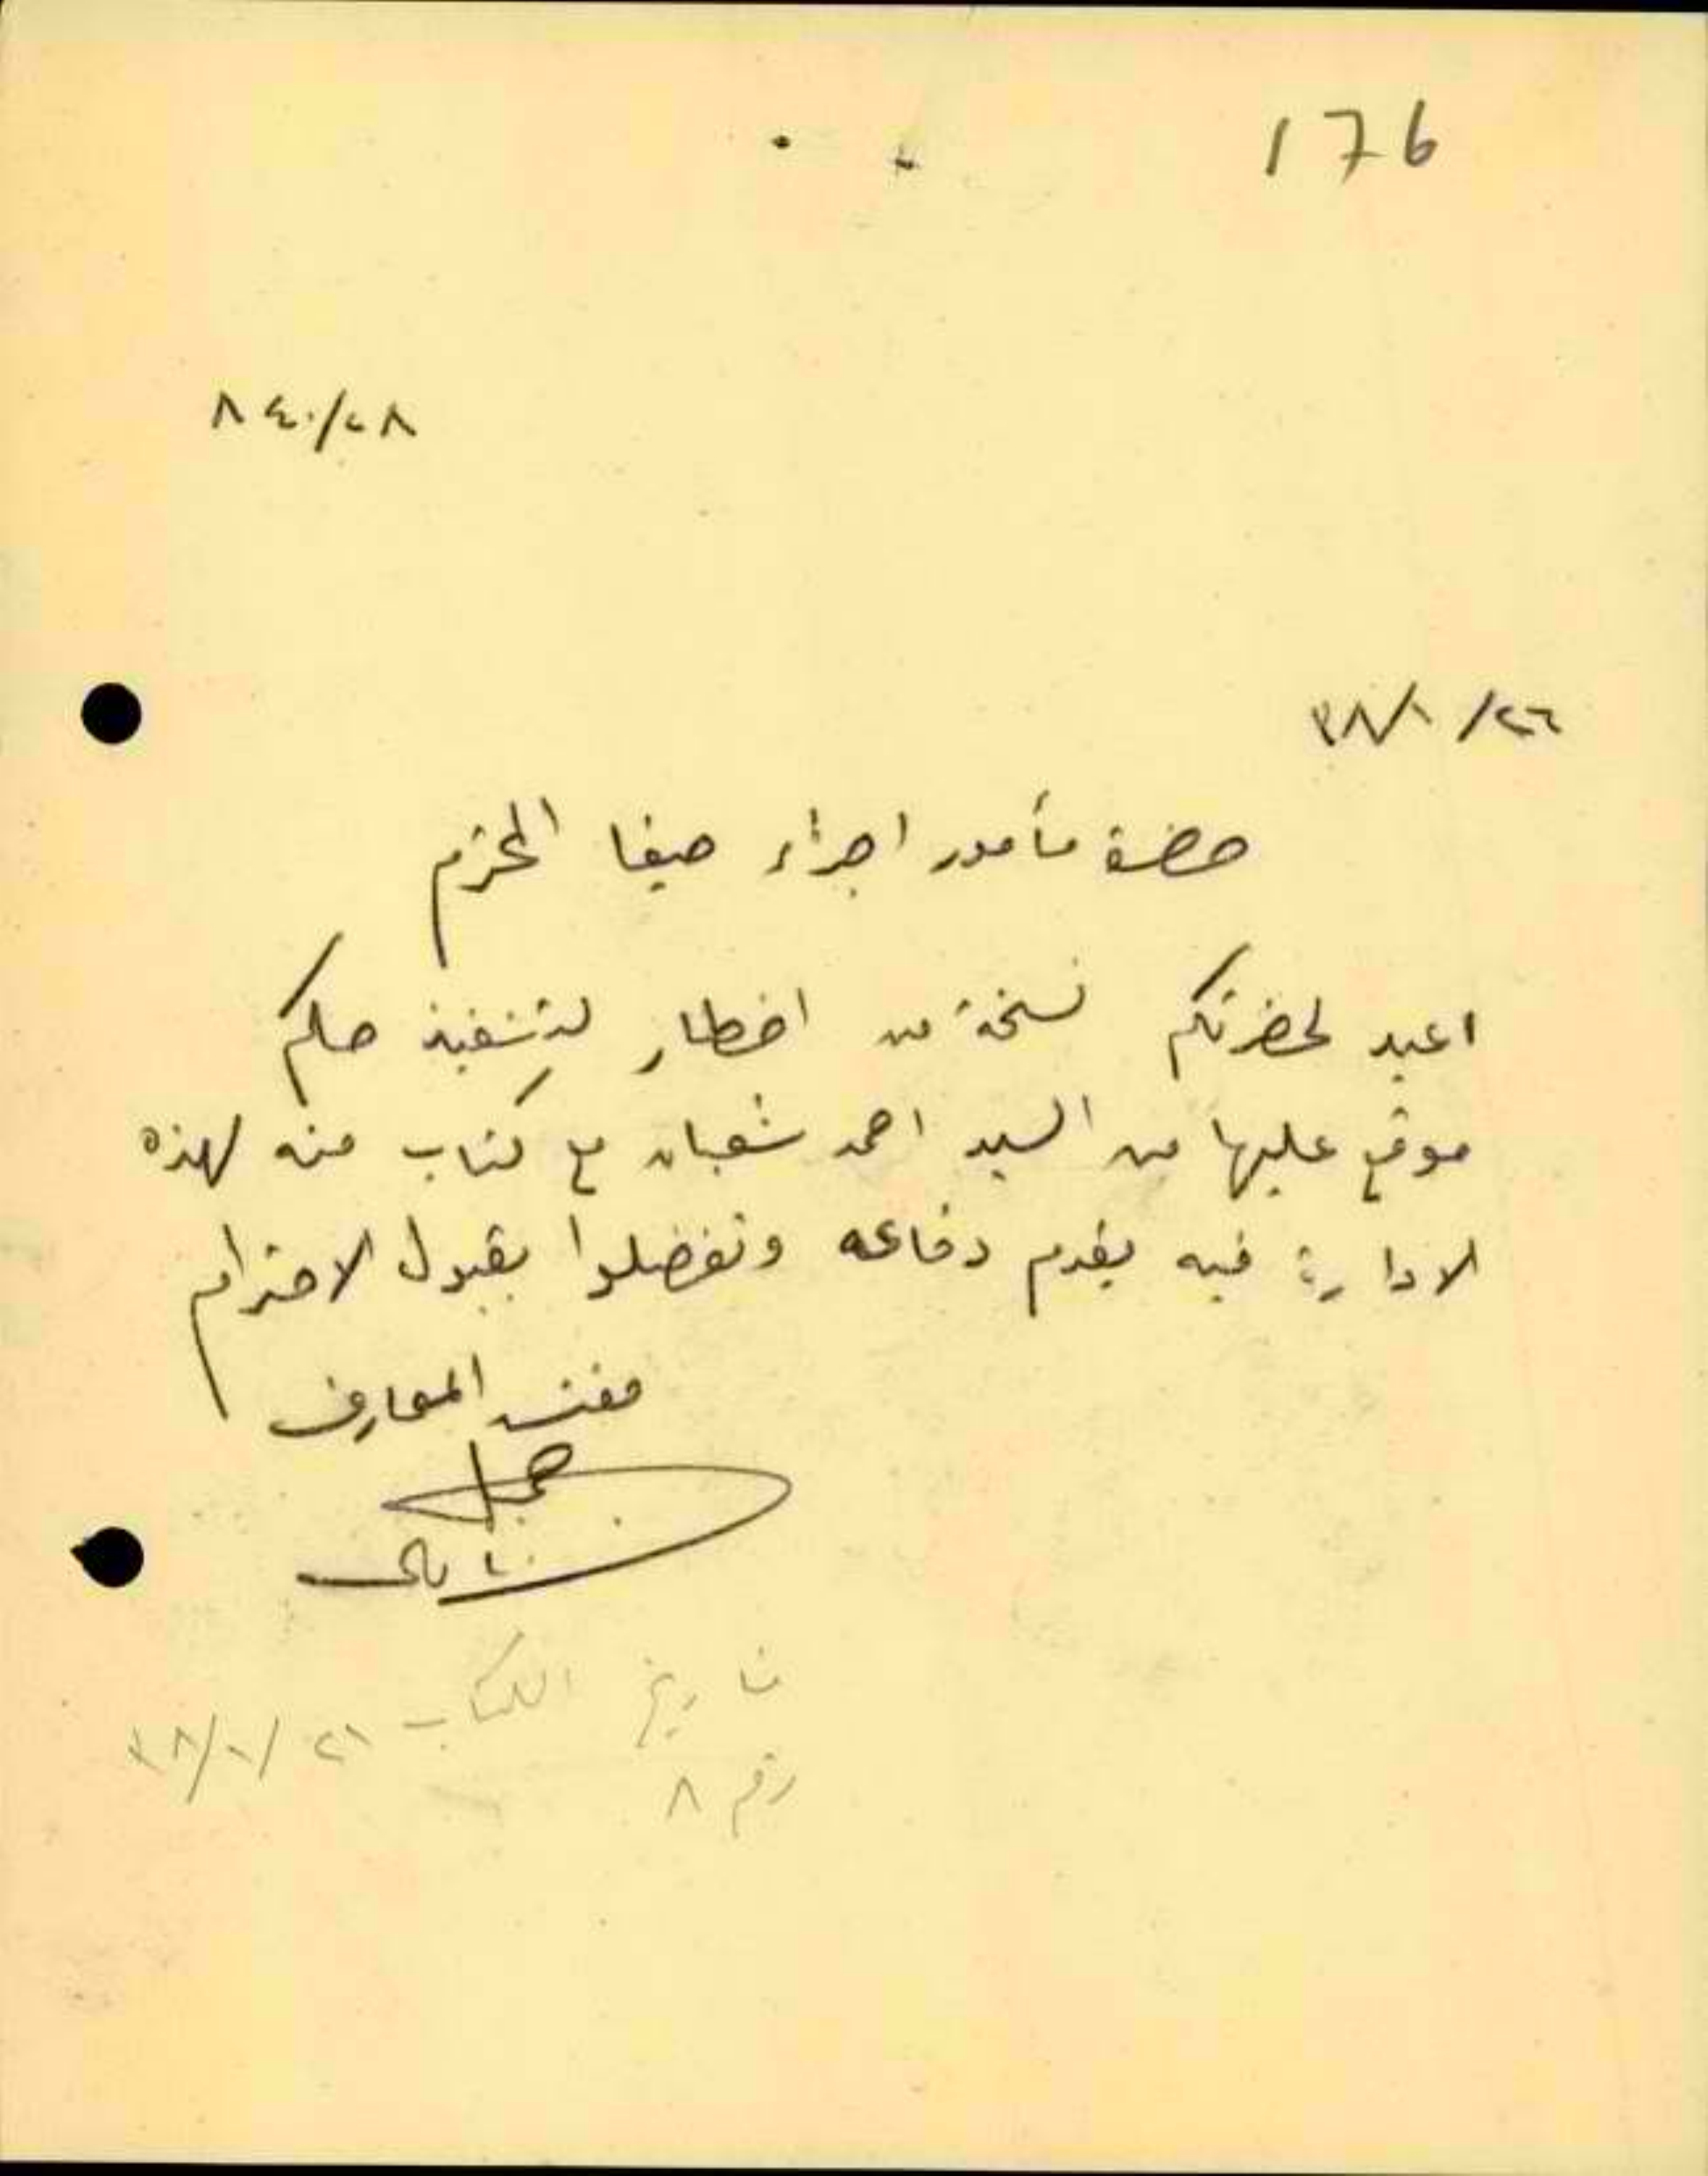 176
٨٤٠/٢٨
٢٦/١/٣٨
حضرة مأمور اجراء حيفا المحترم
اعيد لحضرتكم نسخة من اخطار لتنفيذ حكم
موقع عليها من السيد احمد شعبان مع كتاب منه لهذه
الادارة فيه يقدم دفاعه وتفضلوا بقبول الاحترام
مفتش المعارف
جميل
تاريخ الكتاب ٢١/١/٣٨
رقم ٨